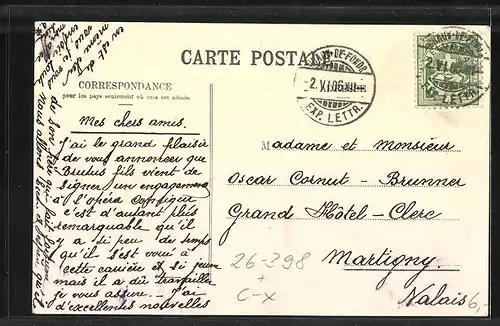 CARTE POSTALE
CORRESPONDANCE
pour les pays seulement où cela est admis.
Mes chers amis.
J'ai le grand plaisir
de vous annoncer que
Brutus fils vient de
signer un engagement
à l'opéra comique
c'est d'autant plus
remarquable qu'il
y a si peu de temps
qu'il s'est voué à
cette carrière et si jeune
mais il a dû travailler
je vous assure. J'ai
d'excellentes nouvelles
de son
Madame et Monsieur
Oscar Cornut-Brunner
Grand Hôtel-Clerc
Martigny
Valais
-2.VI.06.XII-
EXP. LETTR.
2.VI.06
LETTR.
26-298
+
C-X
6,-